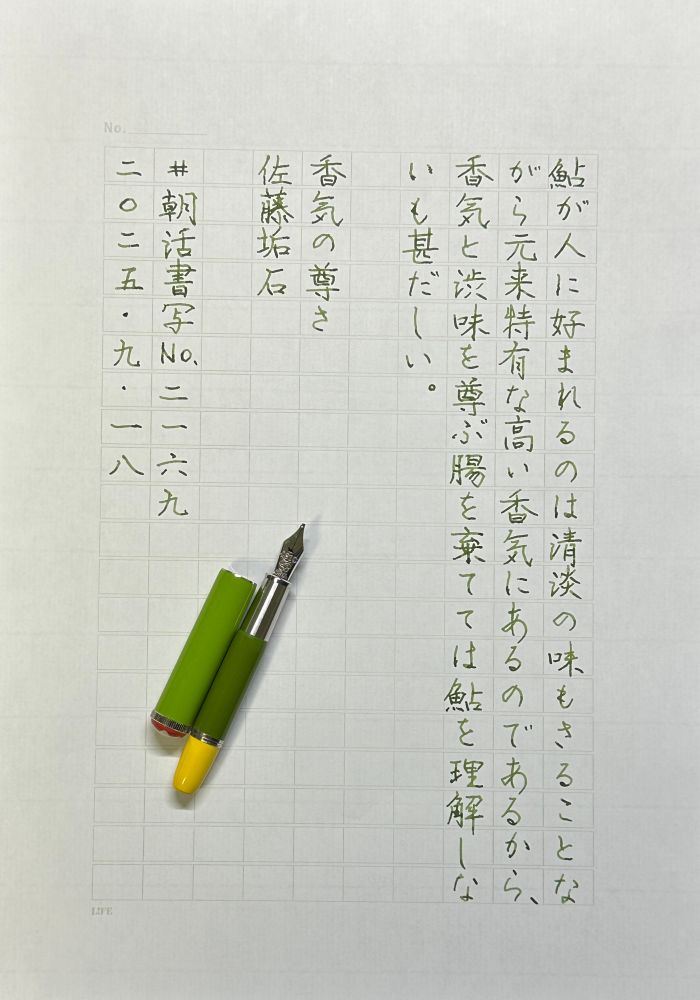 No.
鮎が人に好まれるのは清淡の味もさることな
がら元来特有な高い香気にあるのであるから、
香気と渋味を尊ぶ腸を棄てては鮎を理解しな
いも甚だしい。
香気の尊さ
佐藤垢石
#朝活書写No.二一六九
二〇二五・九・一八
LIFE